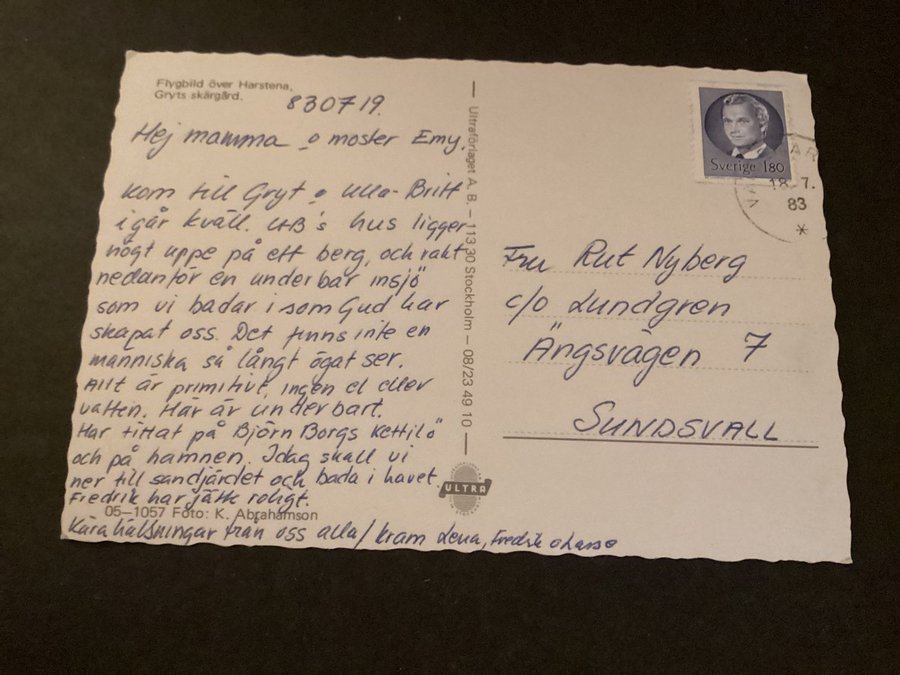 Flygbild över Harstena,
Gryts skärgård.
830719.
Hej mamma o moster Emy.
Kom till Gryt o Ulla-Britt
i går kväll. UB's hus ligger
högt uppe på ett berg, och rakt
nedanför en underbar insjö
som vi badar i som Gud har
skapat oss. Det finns inte en
människa så långt ögat ser.
Allt är primitivt, ingen el eller
vatten. Här är underbart.
Har tittat på Björn Borgs Kettilö
och på hamnen. Idag skall vi
ner till sandjärdet och bada i havet.
Fredrik har jätte roligt.
05-1057 Foto: K. Abrahamson
Kära hälsningar från oss alla/ kram Lena, Fredrik o Lasse
Ultraförlaget A. B. – 113 30 Stockholm – 08/23 49 10
ULTRA
Sverige 180
18.7.
83
*
Fru Rut Nyberg
c/o Lundgren
Ängsvägen 7
SUNDSVALL